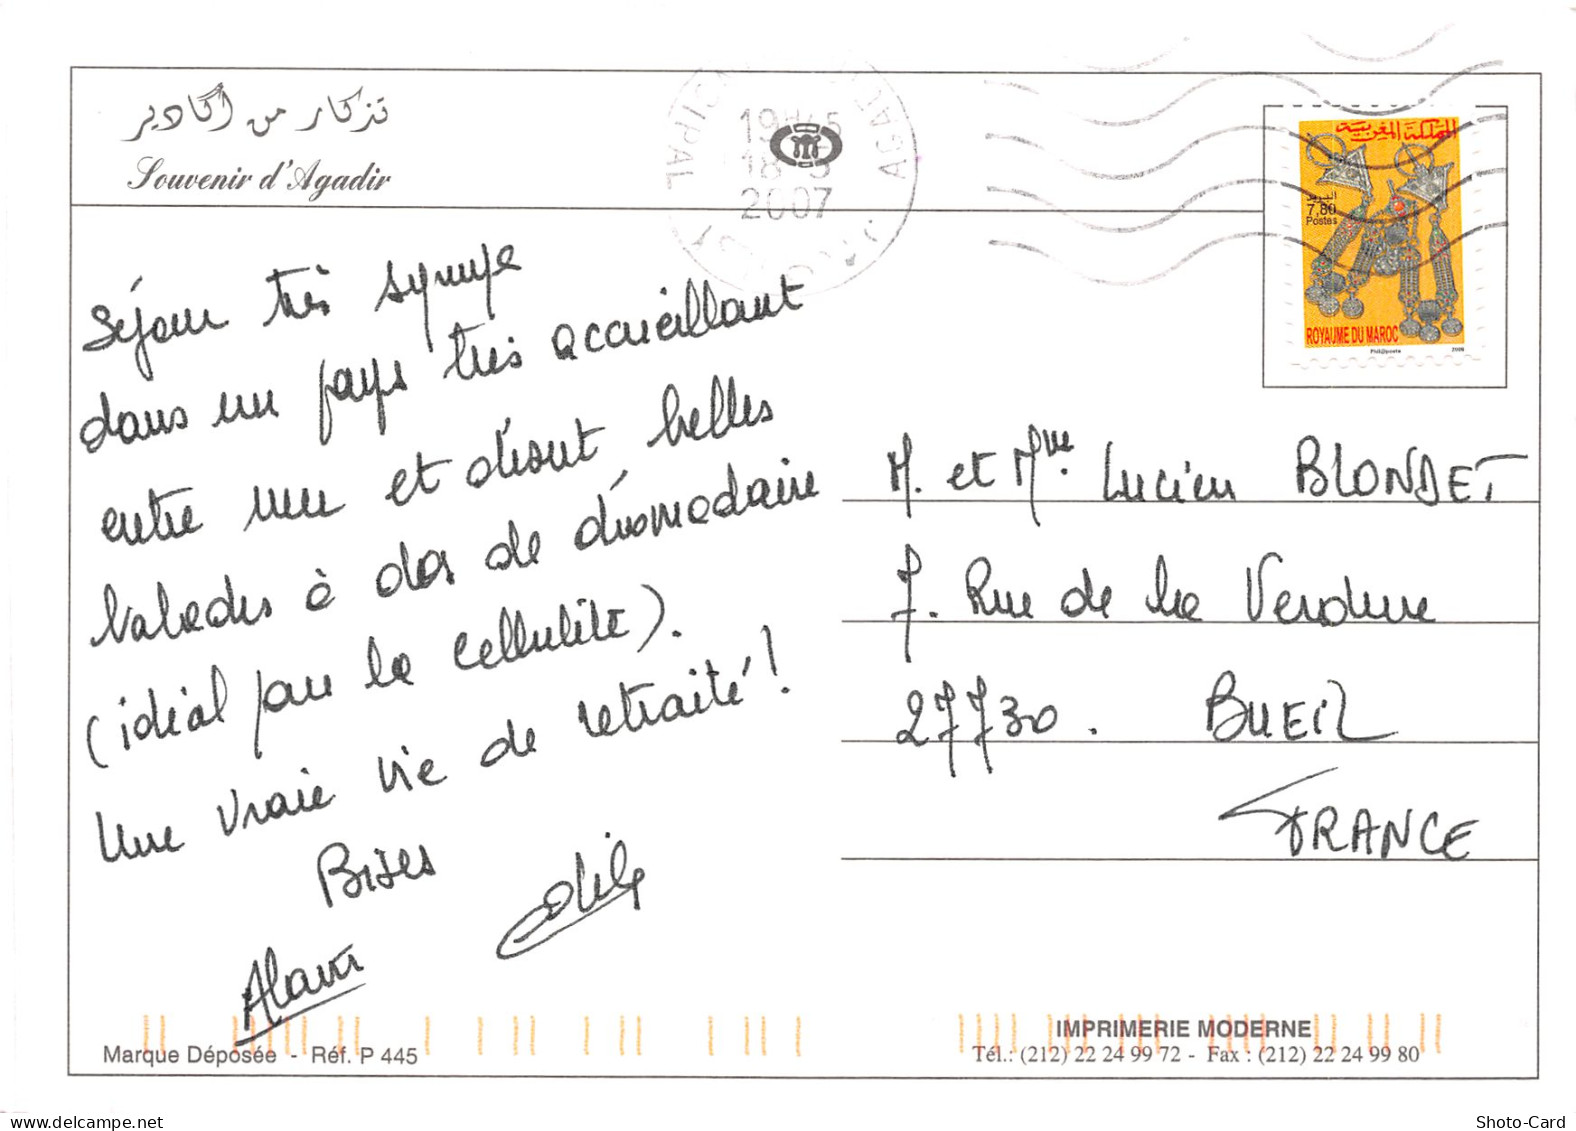 تذكار من أكادير
Souvenir d'Agadir
19H45
18-5
2007
AGADIR
المملكة المغربية
البريد
7,80
Postes
ROYAUME DU MAROC
Phil@poste 2006
Séjour très sympa
dans un pays très accueillant
entre mer et désert, belles
balades à dos de dromadaire
(idéal pour la cellulite).
Une vraie vie de retraité !
Bises
Alain Odile
M. et Mme Lucien BLONDET
7. Rue de la Verdure
27730. BUEIL
FRANCE
Marque Déposée - Réf. P 445
IMPRIMERIE MODERNE
Tél.: (212) 22 24 99 72 - Fax : (212) 22 24 99 80
www.delcampe.net
Shoto-Card